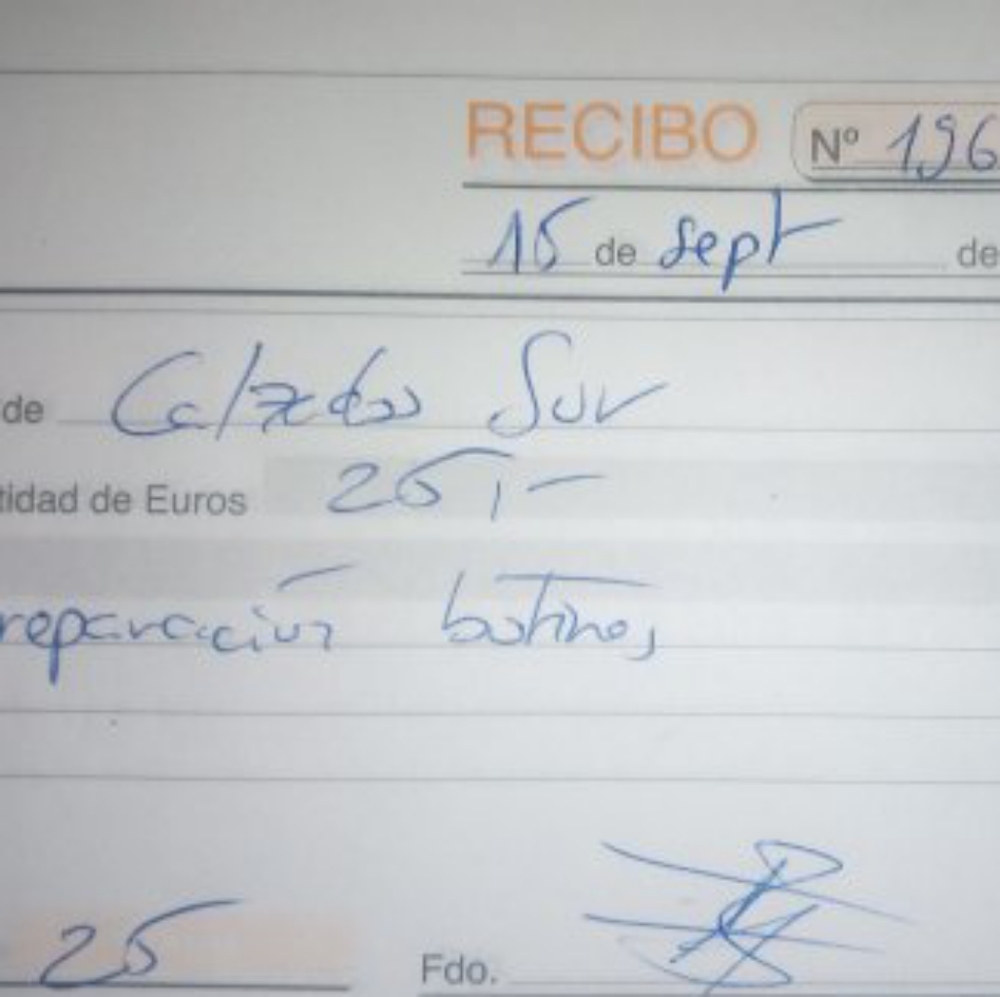 RECIBO Nº 196
15 de sept de
de Calzados Sur
tidad de Euros 25,-
reparación botines
25 Fdo.